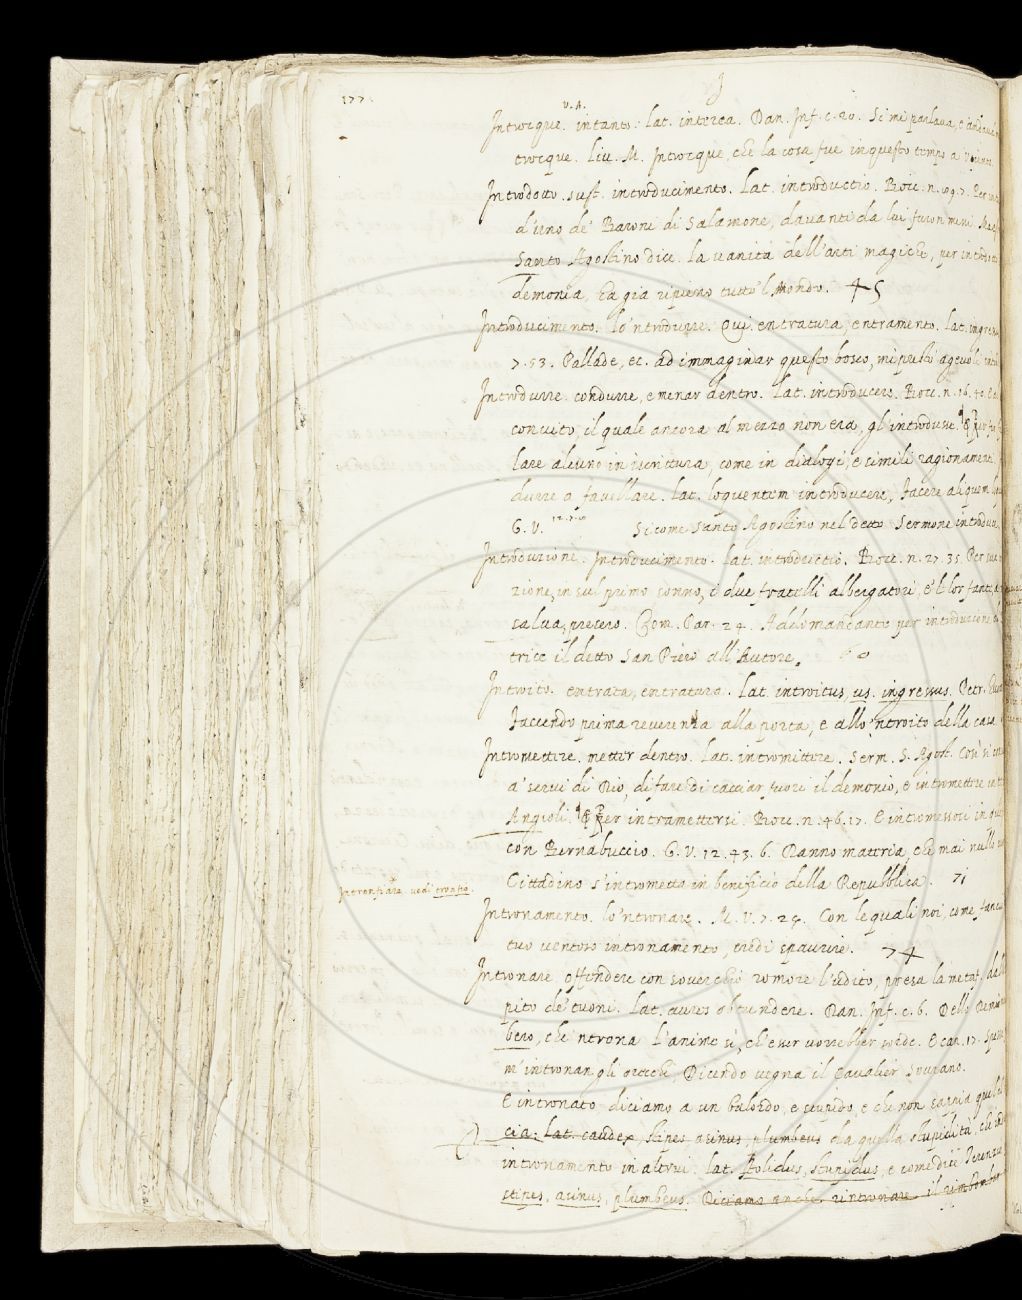 177.
I
v. A.
Introcque. intanto. Lat. interea. Dan. Inf. c. 20. Si mi parlava, e andavam
trocque. Liv. M. Introcque, che la cosa fue in questo tempo a
Introdotto. sust. introducimento. Lat. introductio. Bocc. n.
d'uno de' Baroni di Salamone, davanti da lui furon meni.
Santo Agostino dice. la vanità dell'arti magiche, per
demonia, ha gia ripieno tutto 'l Mondo. 45
Introducimento. lo 'ntrodurre. Qui. entratura, entramento. Lat.
7. 53. Pallade, ec. ad immaginar questo bosco, mi puoti agevole
Introdurre. condurre, e menar dentro. Lat. introducere. Bocc. n. 16.
convito, il quale ancora al mezzo non era, gl' introdusse. Per
lare alcuno in iscrittura, come in dialogi, e simili ragionamenti
durre a favellare. Lat. loquentem introducere, facere aliquem
G. V. 12. Si come Santo Agostino nel detto Sermone
Introduzione. Introducimento. Lat. introductio. Bocc. n. 27. 35. Per sua
zione, in sul primo sonno, i due fratelli albergatori, e' lor fanti,
salva, presero. Com. Par. 24. Addomandanto per introduzione
trice il detto San Piero all' Autore. 60
Introito. entrata, entratura. Lat. introitus, us. ingressus. Petr.
Facendo prima reverenza alla porta, e allo 'ntroito della casa
Intromettere. metter dentro. Lat. intromittere. Serm. S. Agost. Così si
a' servi di Dio, di fare di cacciar fuori il demonio, e intromettere
Angioli. Per intramettersi. Bocc. n. 46. 17. E intromessosi in
con Bernabuccio. G. V. 12. 43. 6. Danno materia, che mai nullo
Cittadino s'intrometta in beneficio della Repubblica. 71
vedi
Intronamento. lo 'ntronare. M. V. 7. 24. Con le quali noi, come
tuo ventoso intronamento, credi spaurire. 74
Intronare offendere con soverchio romore l'udito, presa la metaf. dallo
pito de' tuoni. Lat. aures obtundere. Dan. Inf. c. 6. Dello Demonio
bero, che 'ntrona L'anime sì, ch' esser vorrebber sorde. E can. 17.
m' intronan gli orecchi, Dicendo vegna il Cavalier Sovrano.
E intronato diciamo a un balordo, e stupido, e che non sappia quel
cia. Lat. caudex, stipes, asinus, plumbeus da quella stupidità, che
intronamento in altrui. Lat. stolidus, stupidus, e come dice Terenzio
stipes, asinus, plumbeus. Diciamo anche rintronare il rimbombar